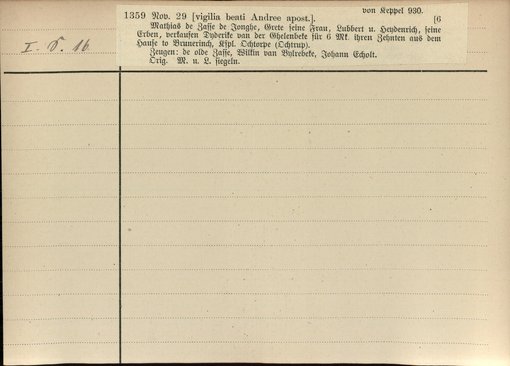 von Keppel 930.
1359 Nov. 29 [vigilia beati Andree apost.]. [6
Mathias de Zasse de Jonghe, Grete seine Frau, Lubbert u. Heydenrich, seine
Erben, verkaufen Dyderike van der Ghelenbeke für 6 Mk. ihren Zehnten aus dem
Hause to Brunerinch, Kspl. Ochtorpe (Ochtrup).
Zeugen: de olde Zasse, Wilkin van Bylrebeke, Johann Echolt.
Orig. M. u. L. siegeln.
I. 16